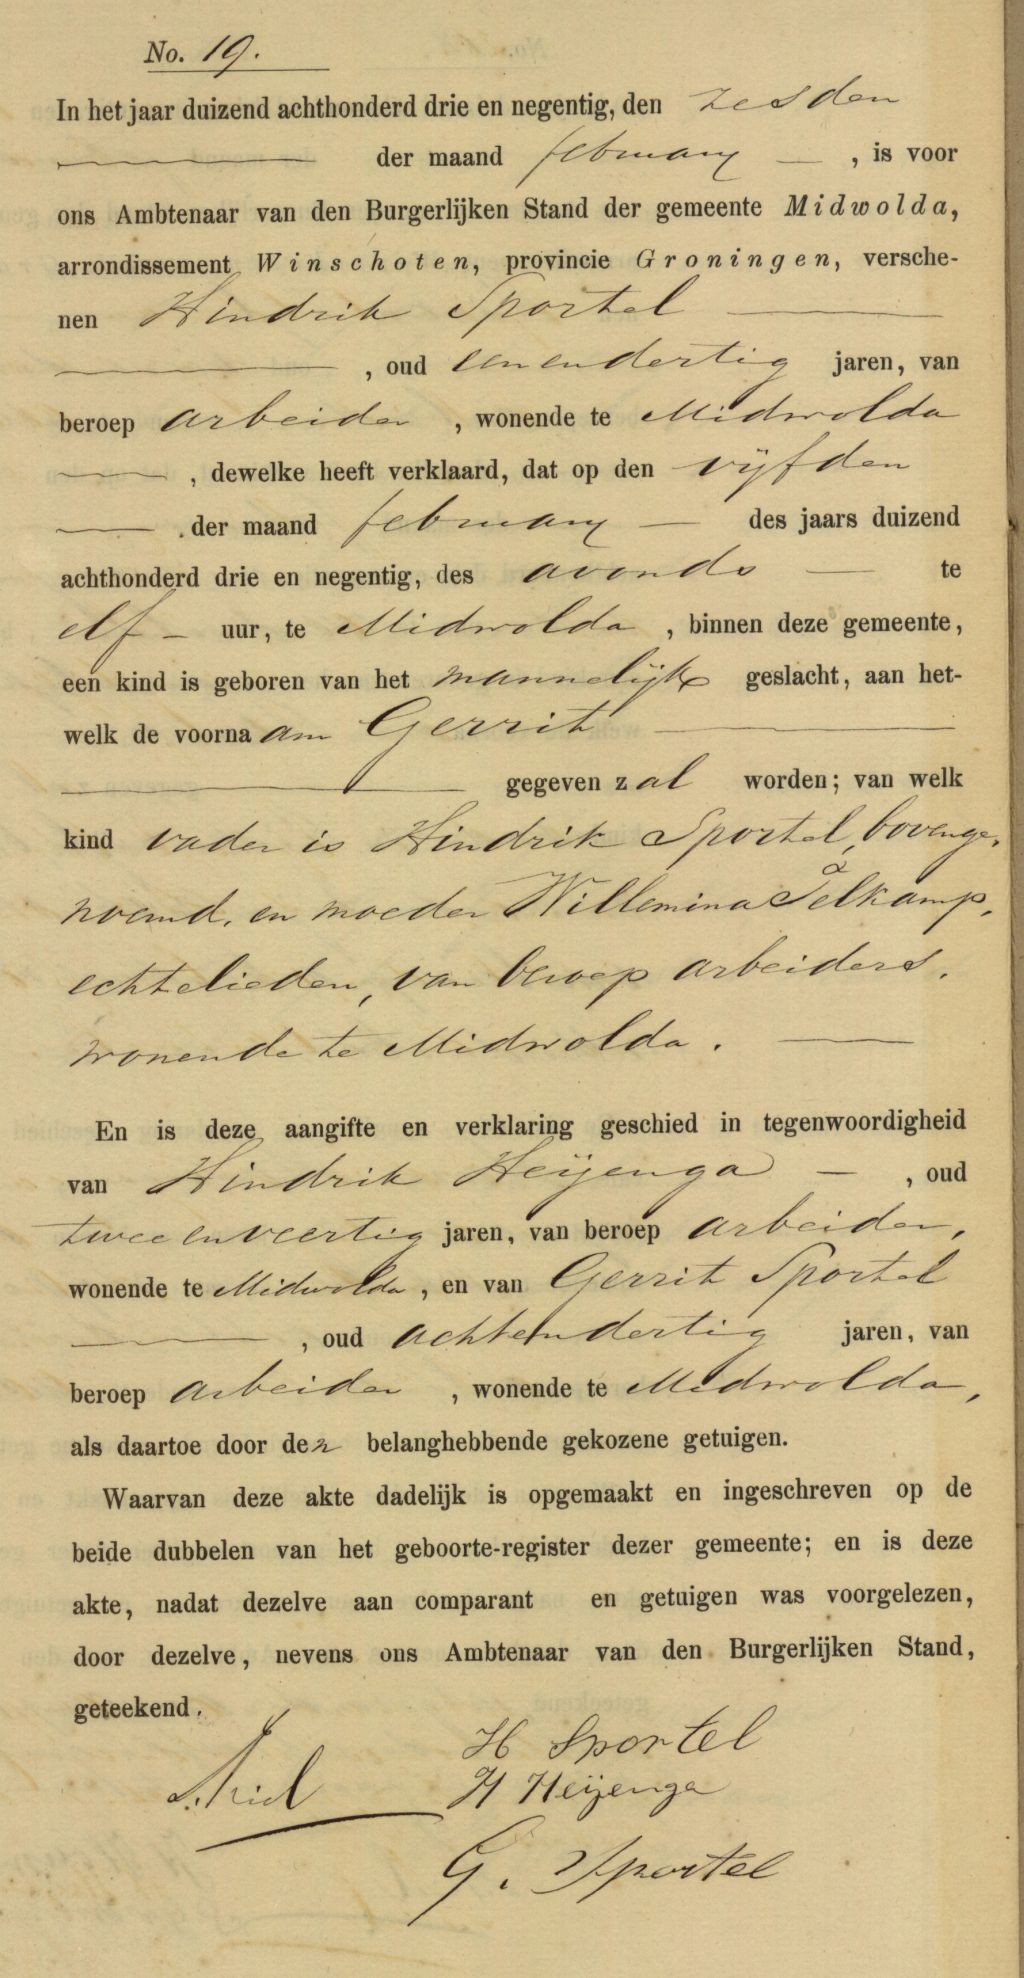 No. 19.
In het jaar duizend achthonderd drie en negentig, den zesden
der maand februarij, is voor
ons Ambtenaar van den Burgerlijken Stand der gemeente Midwolda,
arrondissement Winschoten, provincie Groningen, versche-
nen Hindrik Sportel
, oud eenendertig jaren, van
beroep arbeider, wonende te Midwolda
, dewelke heeft verklaard, dat op den vijfden
der maand februarij des jaars duizend
achthonderd drie en negentig, des avonds te
elf uur, te Midwolda, binnen deze gemeente,
een kind is geboren van het mannelijk geslacht, aan het-
welk de voornaam Gerrit
gegeven zal worden; van welk
kind vader is Hindrik Sportel, bovenge-
noemd, en moeder Willemina Pelkamp,
echtelieden, van beroep arbeiders,
wonende te Midwolda.
En is deze aangifte en verklaring geschied in tegenwoordigheid
van Hindrik Heijenga, oud
tweeenveertig jaren, van beroep arbeider,
wonende te Midwolda, en van Gerrit Sportel
, oud achtendertig jaren, van
beroep arbeider, wonende te Midwolda,
als daartoe door den belanghebbende gekozene getuigen.
Waarvan deze akte dadelijk is opgemaakt en ingeschreven op de
beide dubbelen van het geboorte-register dezer gemeente; en is deze
akte, nadat dezelve aan comparant en getuigen was voorgelezen,
door dezelve, nevens ons Ambtenaar van den Burgerlijken Stand,
geteekend.
H Sportel
H Heijenga
G. Sportel